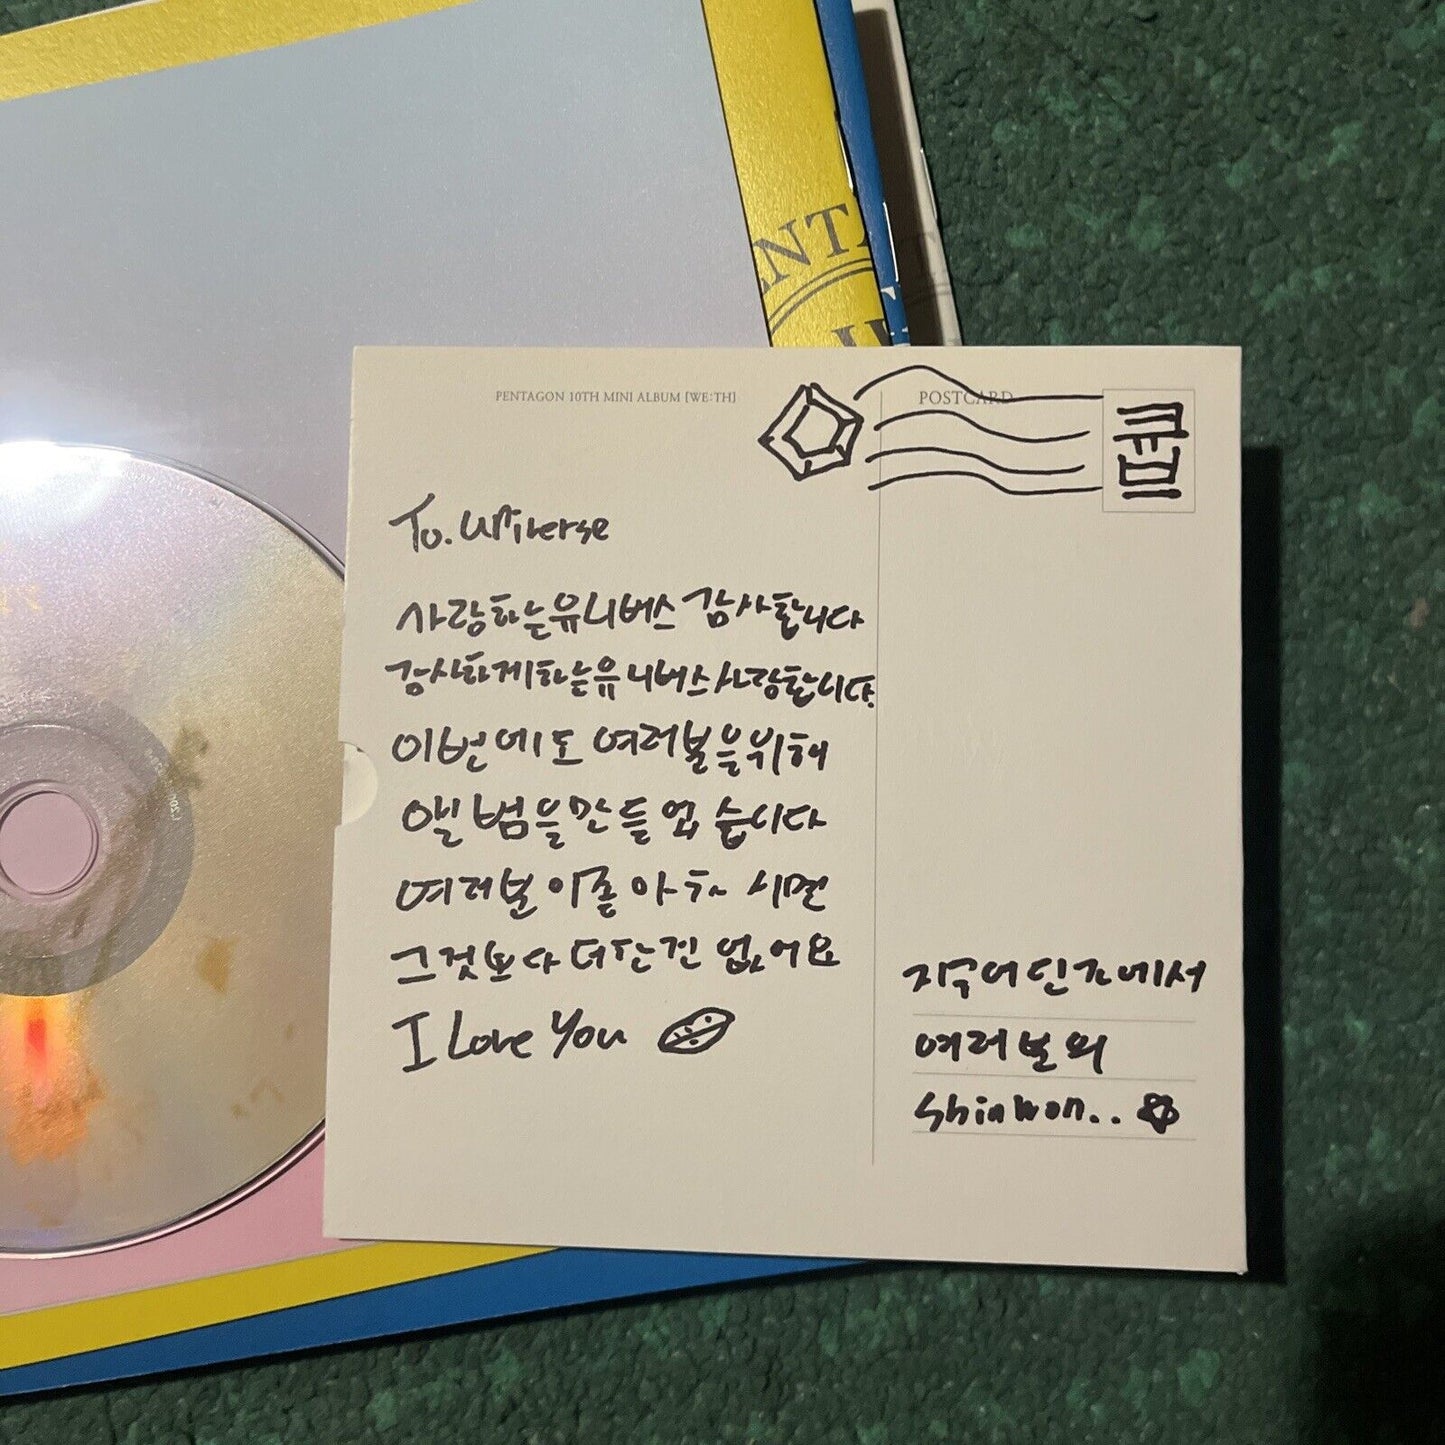 PENTAGON 10TH MINI ALBUM [WE:TH]
POSTCARD
To. Universe
사랑하는 유니버스 감사합니다
감사하게 하는 유니버스 사랑합니다.
이번에도 여러분을 위해
앨범을 만들었습니다
여러분이 좋아하시면
그것보다 더한건 없어요
I Love You
지구 어딘가에서
여러분의
Shinwon..
ENTA